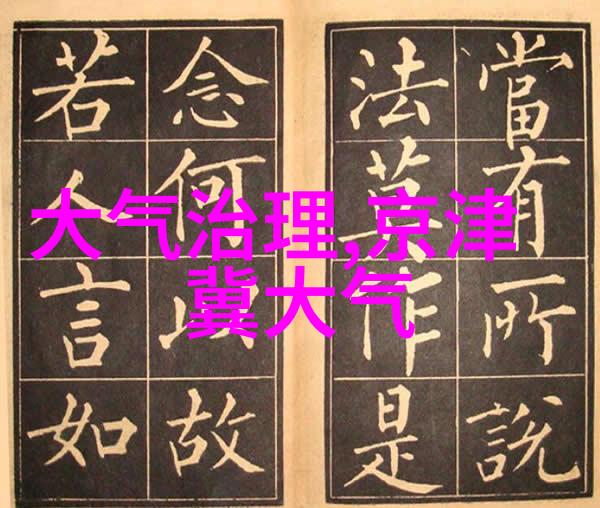 當有所說
法莫作是
念何以故
若人言如
大气治理,京津
冀大气